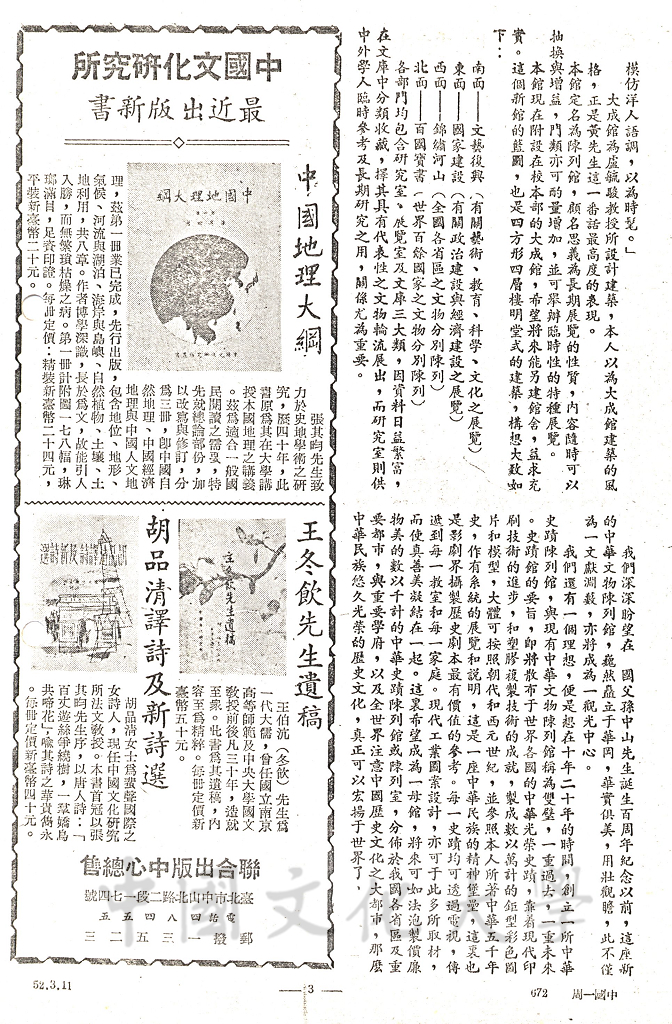 模仿洋人語調，以為時髦。」
大成館為盧毓駿教授所設計建築，本人以為大成館建築的風
格，正是黃先生這一番話最高度的表現。
本館定名為陳列館，顧名思義為長期展覽的性質，內容隨時可以
抽換與增益，門類亦可酌量增加，並可舉辦臨時性的特種展覽。
本館現在附設在校本部的大成館，希望將來能另建館舍，益求充
實。這個新館的藍圖，也是四方形四層樓明堂式的建築，構想大致如
下：
南面——文藝復興（有關藝術、教育、科學、文化之展覽）
東面——國家建設（有關政治建設與經濟建設之展覽）
西面——錦繡河山（全國各省區之文物分別陳列）
北面——百國寶書（世界百餘國家之文物分別陳列）
各部門均包含研究室、展覽室及文庫三大類，因資料日益繁富，
在文庫中分類收藏，擇其具有代表性之文物輪流展出，而研究室則供
中外學人臨時參考及長期研究之用，關係尤為重要。
我們深深盼望在　國父孫中山先生誕生百周年紀念以前，這座新
的中華文物陳列館，巍然矗立于華岡，華實俱美，用壯觀瞻，此不僅
為一文獻淵藪，亦將成為一觀光中心。
我們還有一個理想，便是想在十年二十年的時間，創立一所中華
史蹟陳列館，與現有中華文物陳列館稱為雙璧，一重過去，一重未來
。史蹟館的要旨，即將散布于世界各國的中華光榮史蹟，靠着現代印
刷技術的進步，和塑膠複製技術的成就，製成數以萬計的鉅型彩色圖
片和模型，大體可按照朝代和西元世紀，並參照本人所著中華五千年
史，作有系統的展覽和說明，這是一座中華民族的精神堡壘，這裏也
是影劇界攝製歷史劇本最有價值的參考。每一史蹟均可透過電視，傳
遞到每一教室和每一家庭。現代工業圖案設計，亦可于此多所取材，
而使真善美凝結在一起。這裏希望成為一母館，將來可如法泡製價廉
物美的數以千計的中華史蹟陳列館或陳列室，分佈於我國各省區及重
要都市，與重要學府，以及全世界注意中國歷史文化之大都市，那麼
中華民族悠久光榮的歷史文化，真正可以宏揚于世界了。
中國文化研究所
最近出版新書
中國地理大綱
中國地理大綱
張其昀先生致
力於史地學術之研
究，歷四十年，此
書原爲其在大學講
授本國地理之講義
。茲爲適合一般國
民閱讀之需要，特
先就總論部份，加
以改寫與修訂，分
爲三冊，卽中國自
然地理、中國經濟
地理與中國人文地
理，茲第一冊業已完成，先行出版，包含地位、地形、
氣候、河流與湖泊、海岸與島嶼、自然植物、土壤、土
地利用，共八章。作者博學深識，長於爲文，故能引人
入勝，而無繁瑣枯燥之病。第一冊計附圖一七八幅，琳
瑯滿目，足資印證。每冊定價：精裝新臺幣二十四元，
平裝新臺幣二十元。
王冬飲先生遺稿
王冬飲先生遺稿
王伯沆（冬飲）先生爲
一代大儒，曾任國立南京
高等師範及中央大學國文
教授前後凡三十年，造就
至衆。此書爲其遺稿，內
容至爲精粹。每冊定價新
臺幣五十元。
胡品清譯詩及新詩選
胡品清譯詩及新詩選
胡品清女士爲蜚聲國際之
女詩人，現任中國文化研究
所法文敎授。本書首冠以張
其昀先生序，以唐人詩：「
百丈遊絲爭繞樹，一羣嬌鳥
共啼花」喻其詩之華貴雋永
。每冊定價新臺幣四十元。
聯合出版中心總售
臺北市中山北路二段一七四號
電話四八四五五
郵撥一三五二三
中國文化大學
52.3.11
—3—
672
中國一周